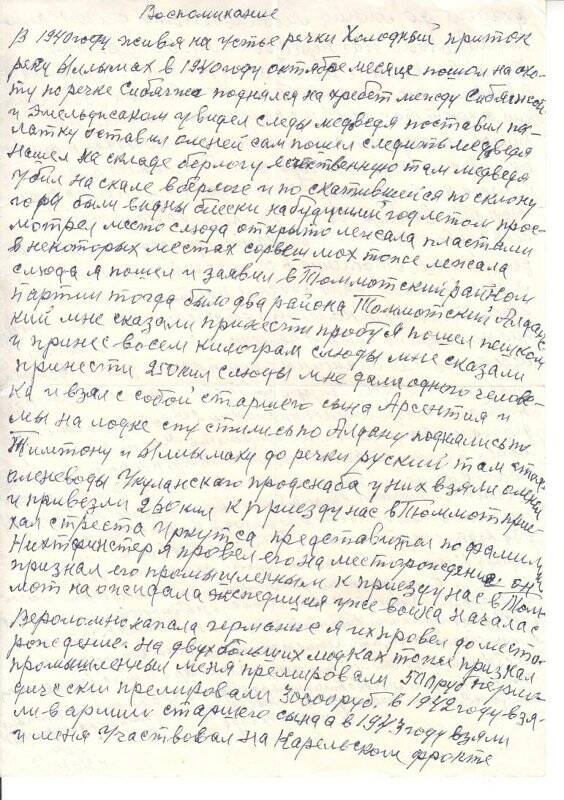 Воспоминание
В 1940 году живя на устье речки Холодный приток
реки Ыллымах в 1940 году октябре месяце пошол на охо-
ту по речке Сибягже поднялся на хребет между Сибягжой
и Эмельджаком увидел следы медведя поставил па-
латку оставил оленей сам пошел следить медведя
нашел на скаде берлогу естественную там медведя
убил на скале в берлоге и по скатившейся по склону
горы были видны блески на будующий год летом прос-
мотрел место слюда открыто лежала пластами
в некоторых местах сорвеш мох тоже лежала
слюда я пошел и заявил в Томмотский райком
партии тогда было два района Томмотский Алданс
кий мне сказали принести пробу я пошел пешком
и принес восем килограм слюды мне сказали
принести 250 кил слюды мне дали одного челове-
ка и взял с собой старшего сына Арсентия и
мы на лодке спустились по Алдану поднялись по
Тимтону и Ыллымаху до речки руский там
оленеводы Укуланского продснаба у них взяли олени
и привезли 250 кил к приезду нас в Томмот прие-
хал с треста Иркутса представител по фамилии
я провел его на месторождение он
признал его промышленным к приезду нас в Том-
мот на ожидала экспедиция уже война началас
Вероломно напала германие я их провел до место-
рождение. на двух больших лодках тоже признал
промышленный меня премировали 500 руб
премировали 30000 руб. в 1942 году взя-
ли в армию старшего сына а в 1943 году взяли
и меня Участвовал на Карельском фронте